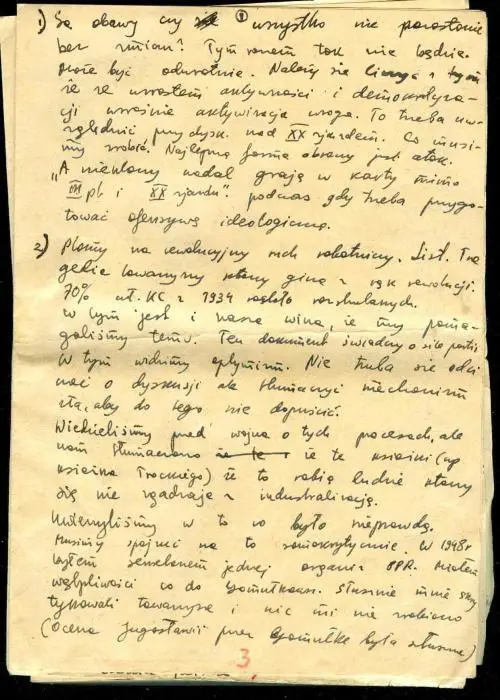 1) Są obawy czy wszystko nie pozostanie
bez zmian? Tym razem tak nie będzie.
Może być odwrotnie. Należy się liczyć z tym
że ze wzrostem aktywności i demokratyza-
cji wzrośnie aktywizacja wroga. To trzeba uw-
zględnić przy dysk. nad XX zjazdem. Co musi-
my zrobić. Najlepszą formą obrony jest atak.
"A niektórzy nadal grają w karty mimo
III pl i XX zjazdu". podczas gdy trzeba przygo-
tować ofensywę ideologiczną.
2) Plamy na rewolucyjny ruch robotniczy. List. Tra
gedie towarzyszy którzy giną z rąk rewolucji.
70% czł. KC z 1934 zostało rozstrzelanych.
w tym jest i nasza wina, że my poma-
galiśmy temu. Ten dokument świadczy o sile partii
W tym widzimy optymizm. Nie trzeba się odci
nać o dyskusji ale tłumaczyć mechanizm
zła, aby do tego nie dopuścić.
Wiedzieliśmy przed wojną o tych procesach, ale
nam tłumaczono że te książki (np
książka Trockiego) że to robią ludzie którzy
się nie zgadzają z industralizacją.
Uwierzyliśmy w to co było nieprawdą.
Musimy spojrzeć na to samokrytycznie. W 1948r
byłem sekretarzem jednej organiz PPR. Miałem
wątpliwości co do Gomułkows. Słusznie mnie skry
tykowali towarzysze i nic mi nie zrobiono
(Ocena Jugosławii przez Gomułkę była słuszna)
3